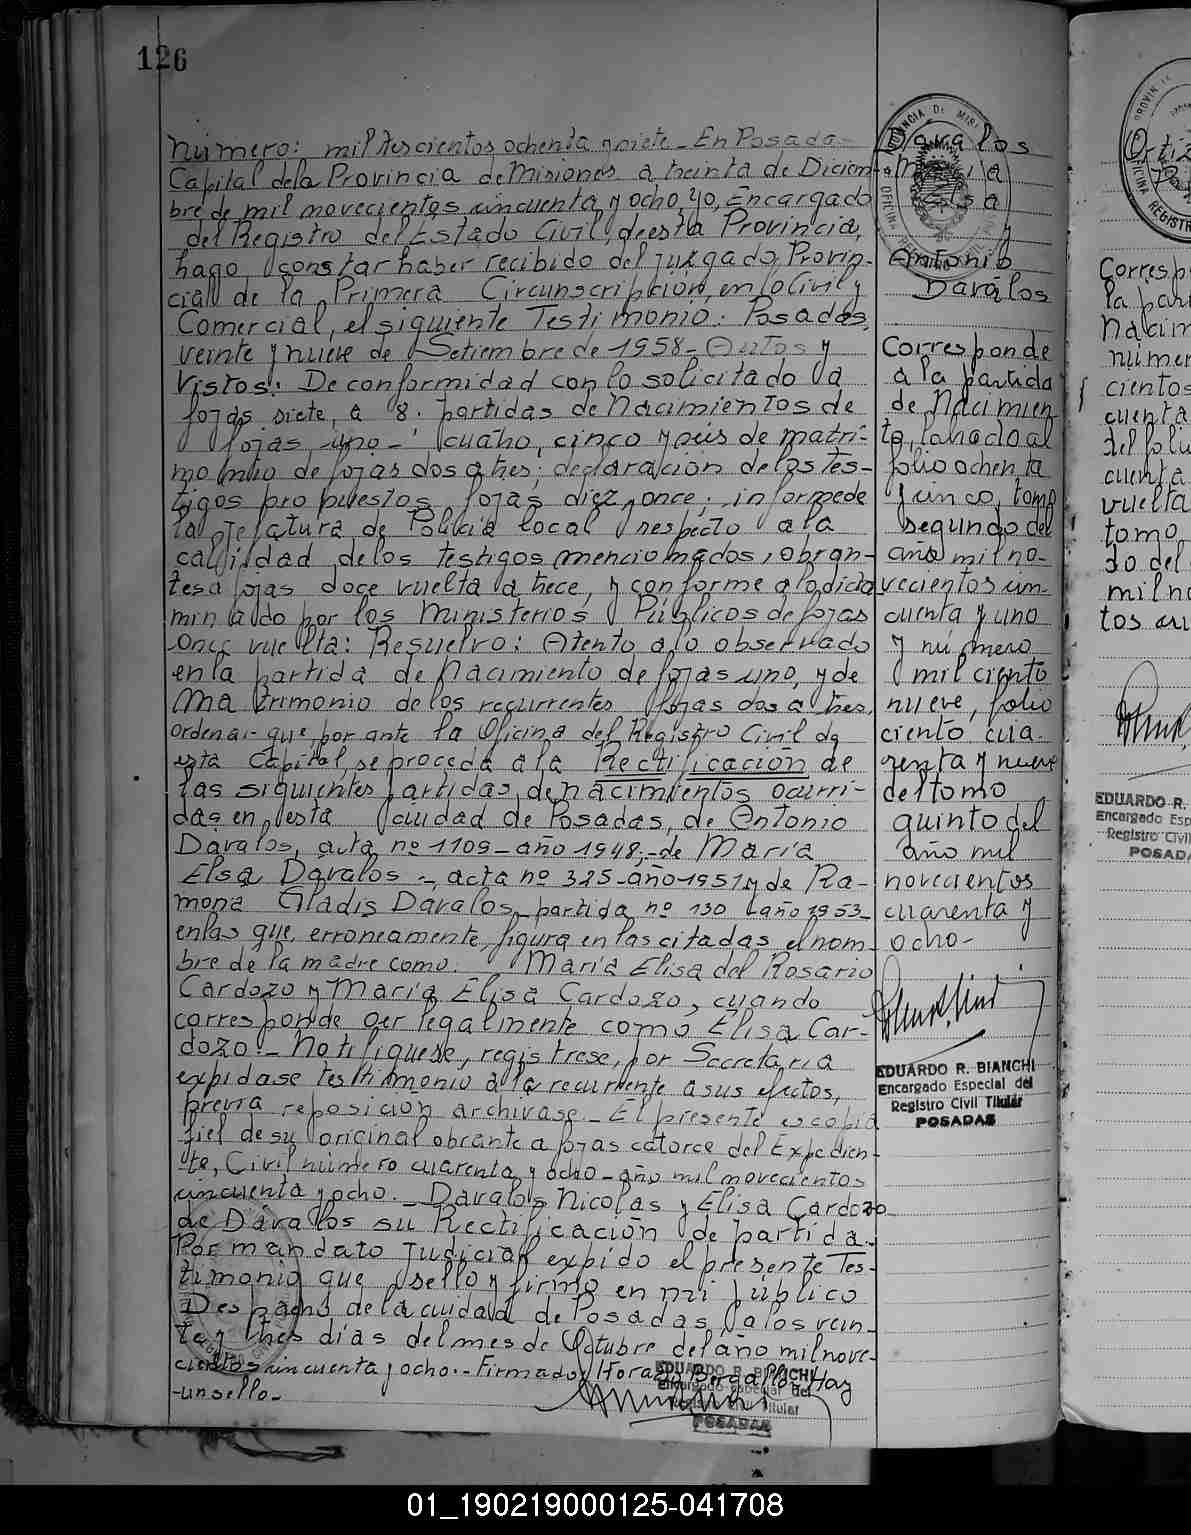 126
Número: mil trescientos ochenta y siete - En Posadas
Capital de la Provincia de Misiones a treinta de Diciem-
bre de mil novecientos cincuenta y ocho, yo, Encargado
del Registro del Estado Civil, de esta Provincia,
hago constar haber recibido del Juzgado Provin-
cial de la Primera Circunscripción, en lo Civil y
Comercial, el siguiente Testimonio: Posadas,
veinte y nueve de Setiembre de 1958 - Autos y
Vistos: De conformidad con lo solicitado a
fojas siete, a 8. partidas de nacimientos de
fojas uno - cuatro, cinco y seis de matri-
monio de fojas dos a tres; declaración de los tes-
tigos propuestos fojas diez, once; informe de
la Jefatura de Policia local respecto a la
calidad de los testigos mencionados, obran-
tes a fojas doce vuelta a trece, y conforme a lo dicta-
minado por los Ministerios Públicos de fojas
once vuelta: Resuelvo: Atento a lo observado
en la partida de nacimiento de fojas uno, y de
Matrimonio de los recurrentes fojas dos a tres,
ordenar que por ante la Oficina del Registro Civil de
esta Capital, se proceda a la Rectificación de
las siguientes partidas, de nacimientos ocurri-
das en esta ciudad de Posadas, de Antonio
Davalos, acta nº 1109 - año 1948, - de María
Elsa Dávalos -, acta nº 325 - año 1951 y de Ra-
mona Gladis Davalos, partida nº 130 año 1953 -
en las que, erroneamente, figura en las citadas el nom-
bre de la madre como: María Elisa del Rosario
Cardozo y María Elisa Cardozo, cuando
corresponde ser legalmente como Elisa Car-
dozo. - Notifíquese, regístrese, por Secretaría
expídase testimonio a la recurrente a sus efectos,
previa reposición archívase. - El presente es copia
fiel de su original obrante a fojas catorce del Expedien-
te, Civil número cuarenta y ocho - año mil novecientos
cincuenta y ocho. - Davalos Nicolas y Elisa Cardozo
de Dávalos su Rectificación de partida.
Por mandato Judicial expido el presente Tes-
timonio que sello y firmo en mi público
Despacho de la ciudad de Posadas, a los vein-
ta y tres días del mes de Octubre del año mil nove-
cientos cincuenta y ocho. - Firmado Horacio Bergallo. Hay
- un sello. -
EDUARDO R. BIANCHI
Encargado Especial del
Registro Civil Titular
POSADAS
Davalos
María
Elsa
y
Antonio
Davalos
Corresponde
a la partida
de Nacimien
to, labrado al
folio ochenta
y cinco, tomo
segundo del
año mil no-
vecientos cin-
cuenta y uno
y número
mil ciento
nueve, folio
ciento cua-
renta y nueve
del tomo
quinto del
año mil
novecientos
cuarenta y
ocho -
EDUARDO R. BIANCHI
Encargado Especial del
Registro Civil Titular
POSADAS
Ortiz
Corresp
la par
Nacim
númer
cientos
cuenta
del foli
cuenta
vuelta
tomo
do del
mil no
tos cu
EDUARDO R.
Encargado Esp
Registro Civil
POSADA
01_190219000125-041708